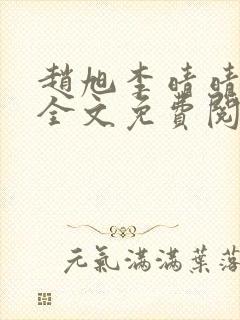 趙旭李晴晴
全文免費閱
元氣滿滿葉落